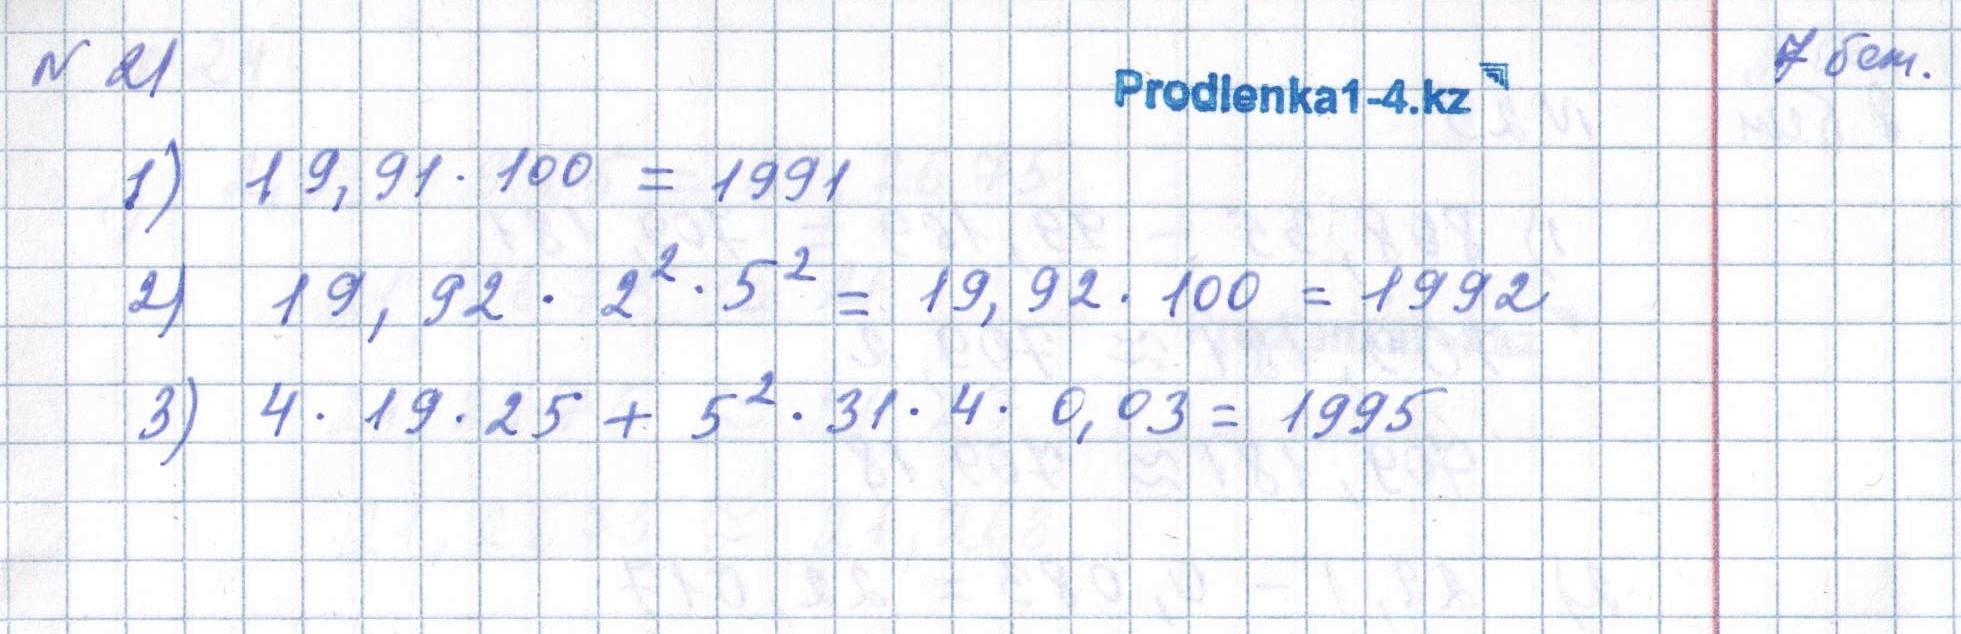 N 21
7 бет.
Prodlenka1-4.kz
1) 19,91 · 100 = 1991
2) 19,92 · 2² · 5² = 19,92 · 100 = 1992
3) 4 · 19 · 25 + 5² · 31 · 4 · 0,03 = 1995